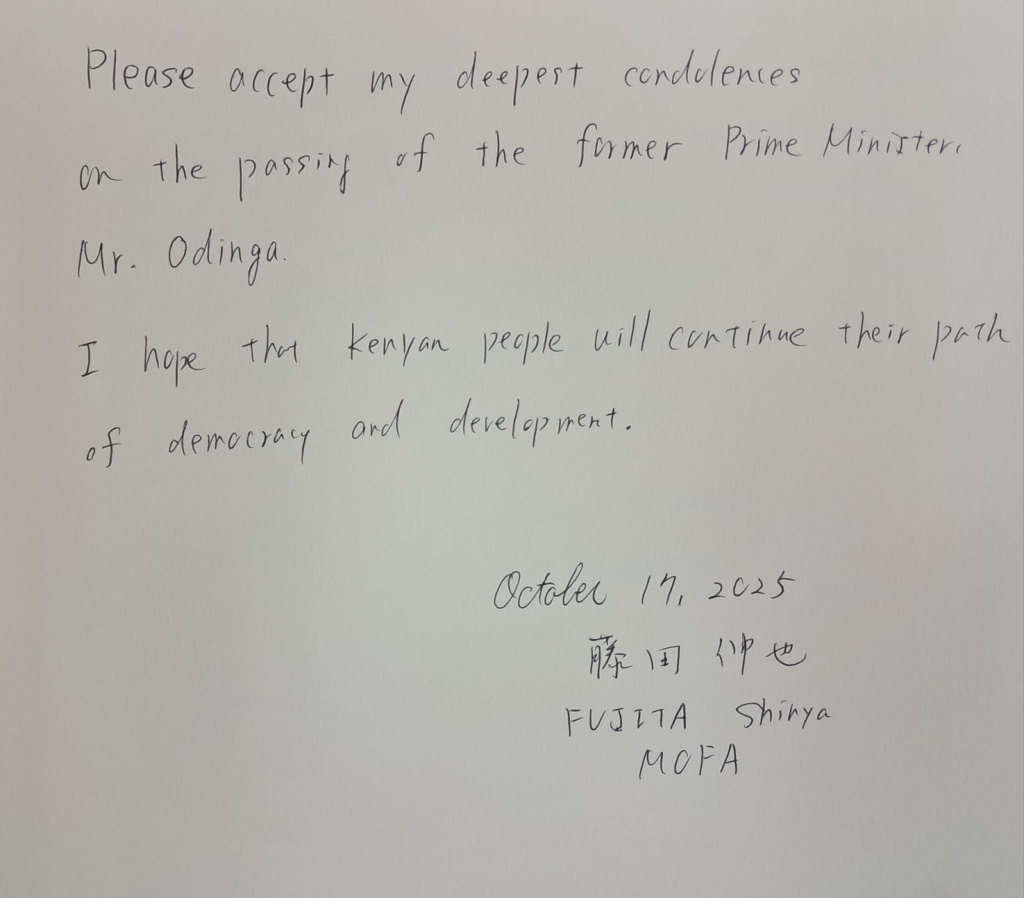 Please accept my deepest condolences
on the passing of the former Prime Minister,
Mr. Odinga.
I hope that Kenyan people will continue their path
of democracy and development.
October 17, 2025
藤田 伸也
FUJITA Shinya
MOFA